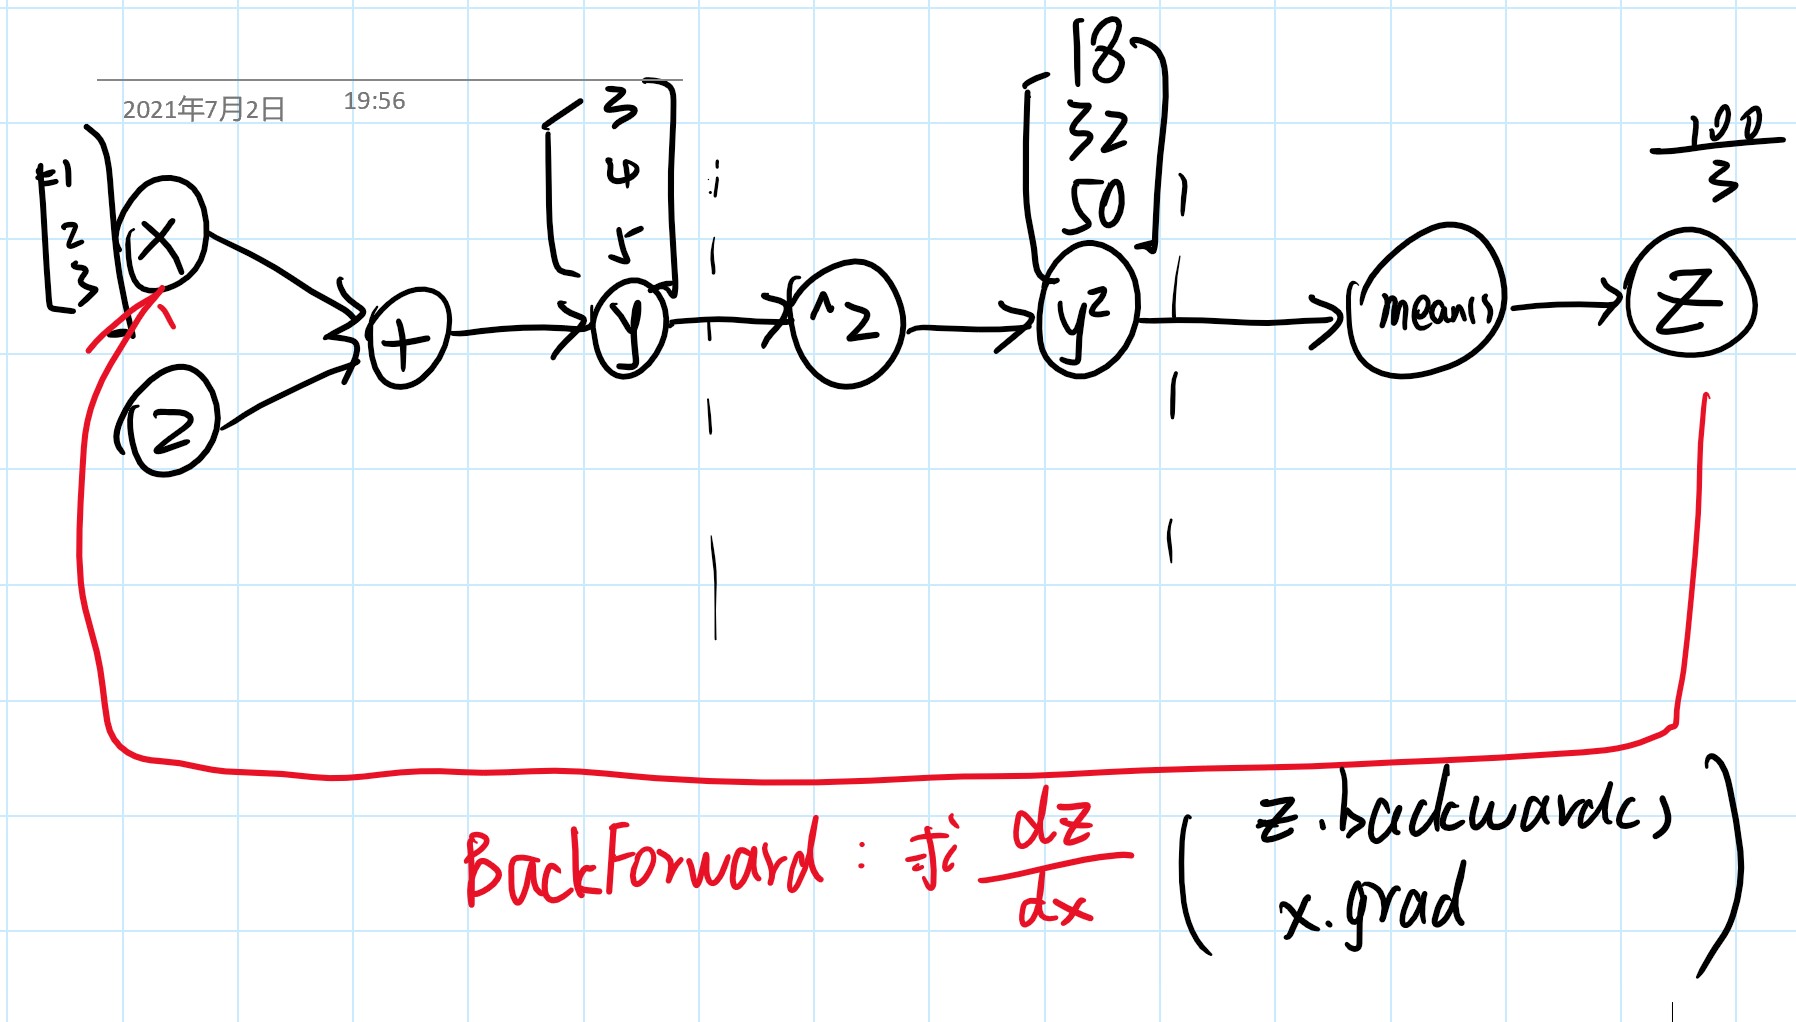 2021年7月2日 19:56
1
2
3
x
2
+
3
4
5
y
^2
18
32
50
y²
mean()
100
3
z
BackForward: 求 dz
dx
z.backward()
x.grad